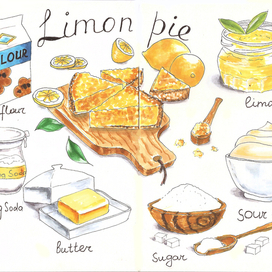 Limon pie
FLOUR
flour
lim
Soda
g Soda
Sour
butter
Sugar